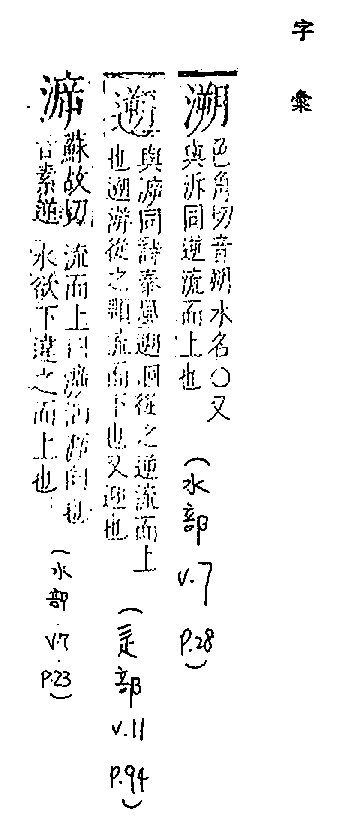 字彙
溯 色角切音朔水名○又
與泝同逆流而上也
遡 與泝同詩秦風遡洄從之逆流而上
也遡游從之順流而下也又迎也
(水部 v.7 P.28)
(辵部 v.11 P.94)
蘇故切 流而上曰㴑洄㴑向也
音素逆 水欲下違之而上也
(水部 v.7 P.23)